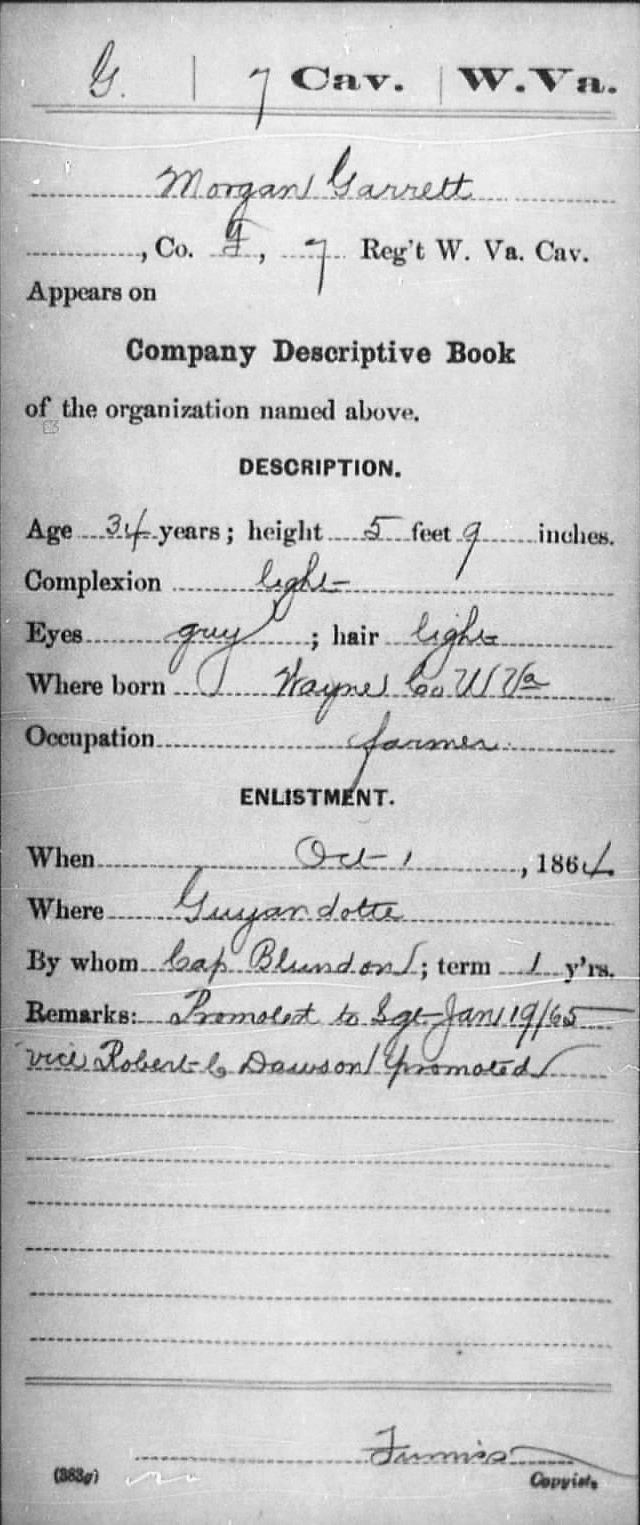 G. | 7 Cav. | W.Va.
Morgan Garrett
, Co. , 7 Reg't W. Va. Cav.
Appears on
Company Descriptive Book
of the organization named above.
DESCRIPTION.
Age 34 years; height 5 feet 9 inches.
Complexion light
Eyes grey; hair light
Where born Wayne Co W Va
Occupation farmer
ENLISTMENT.
When Oct 1, 1864.
Where Guyandotte
By whom Cap Blundon; term 1 y'rs.
Remarks: Promoted to Sgt Jan 19/65
vice Robert C Dawson promoted
(383g) Copyist.